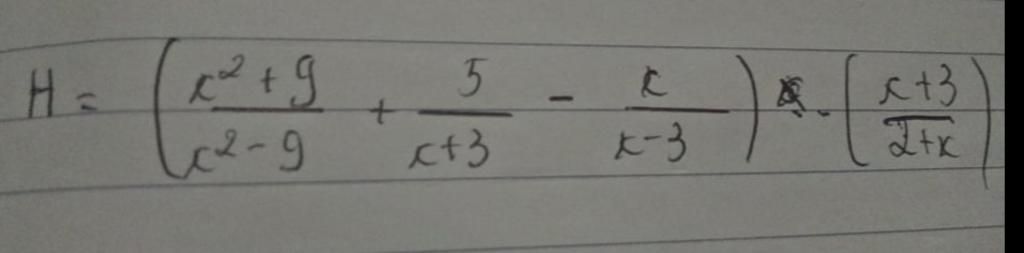 H = ( \frac{x^2+9}{x^2-9} + \frac{5}{x+3} - \frac{x}{x-3} ) . ( \frac{x+3}{2+x} )